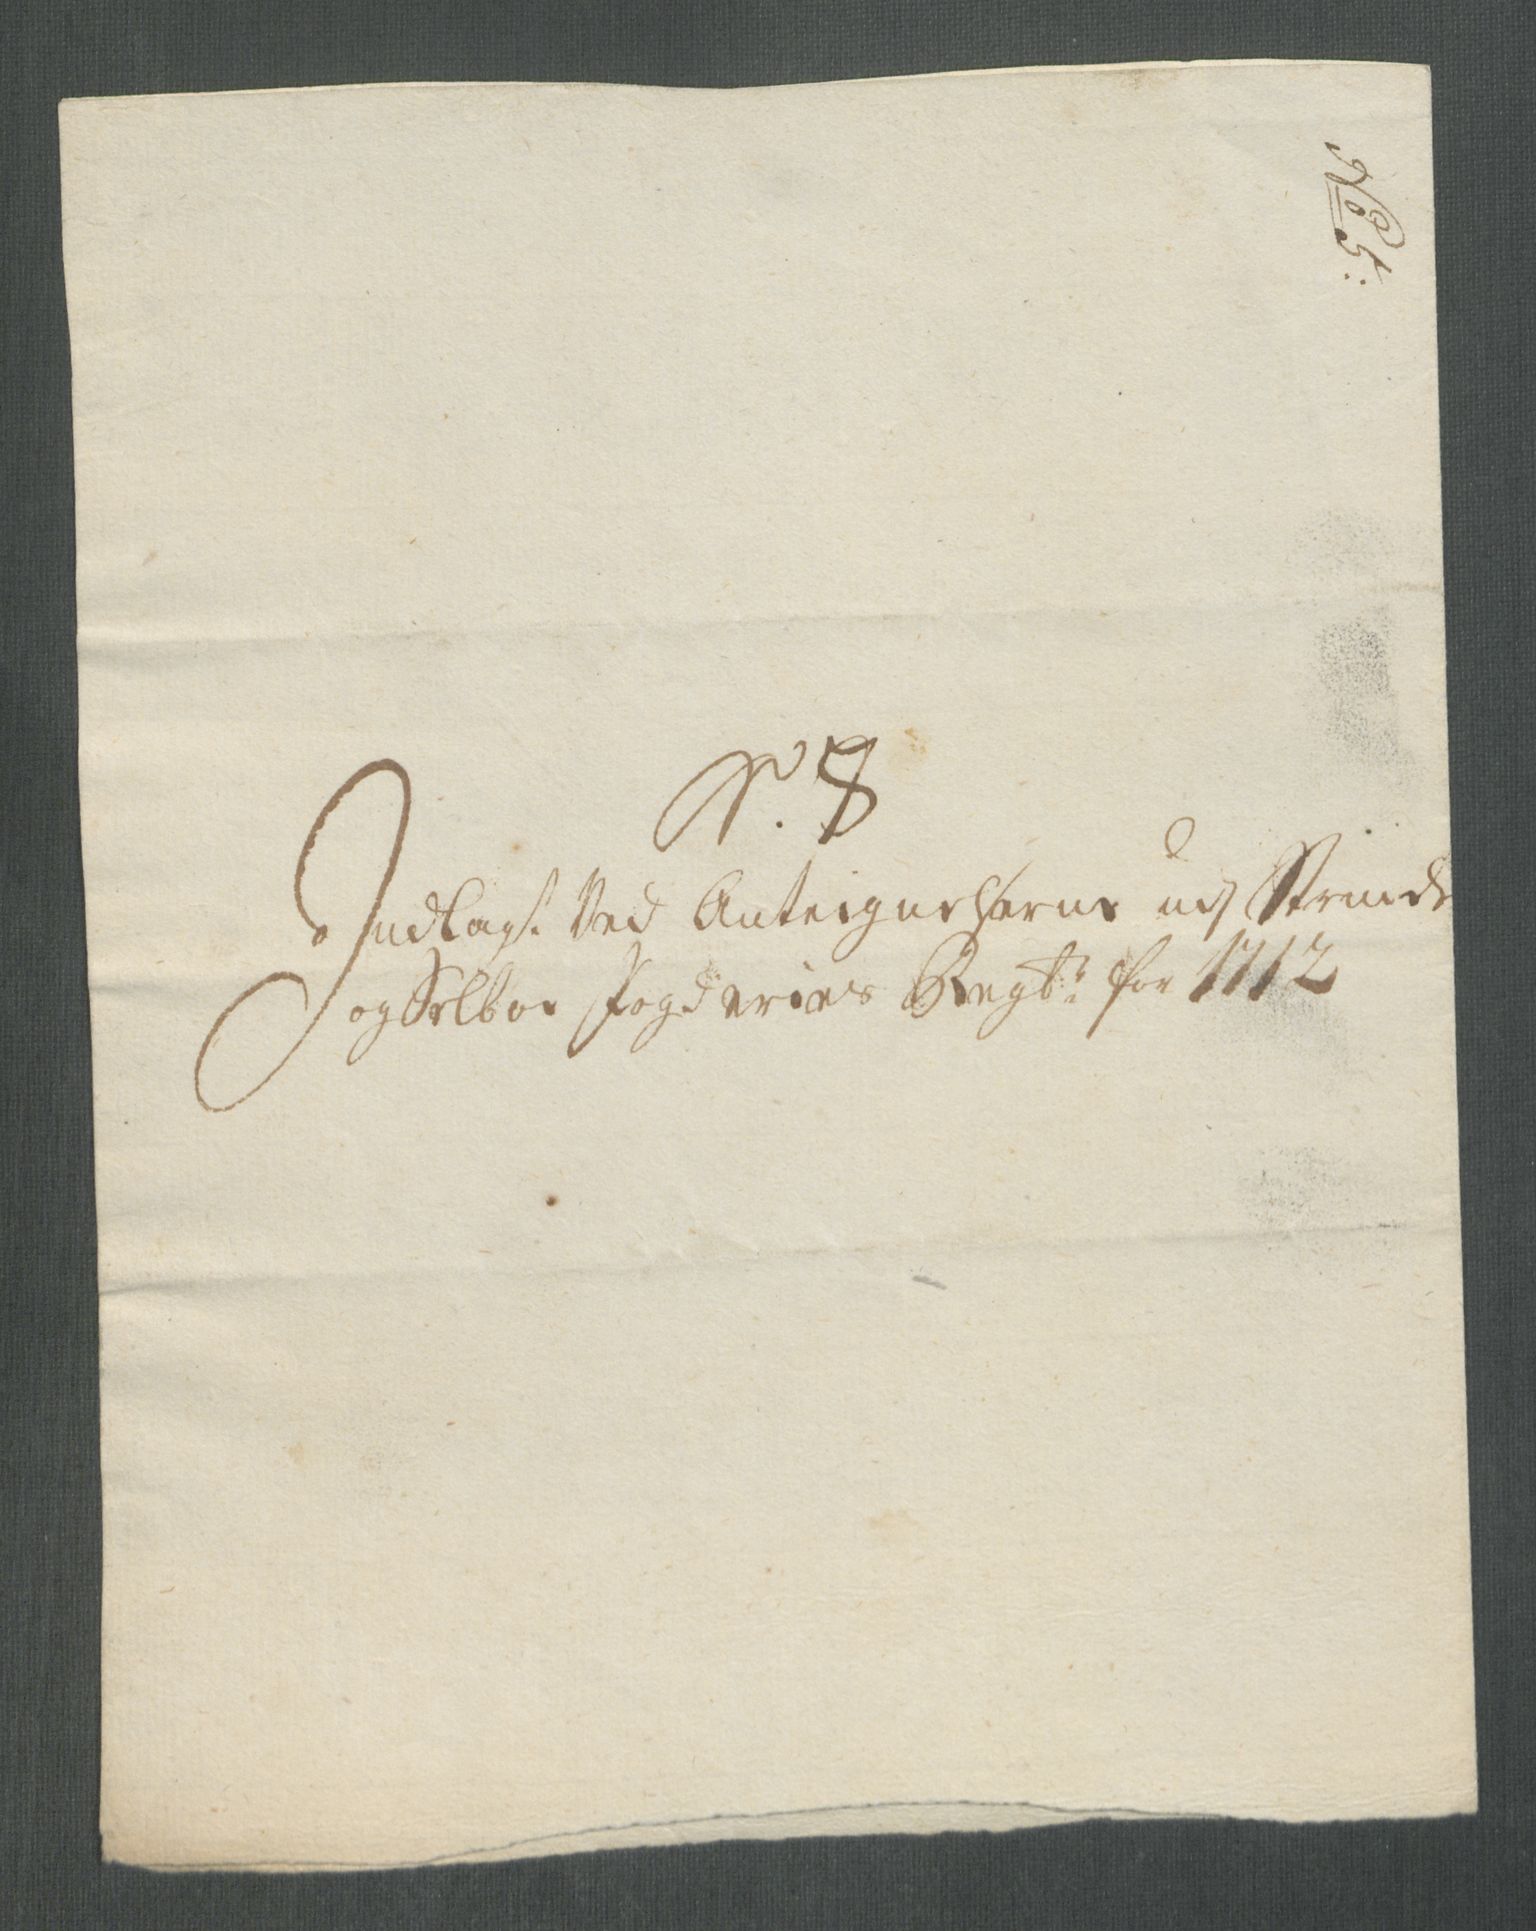 No 5.
N. 8
Indlagt Ved Anteignelserne udj Strinde
og Selboe Fogderies Regbr. for 1712